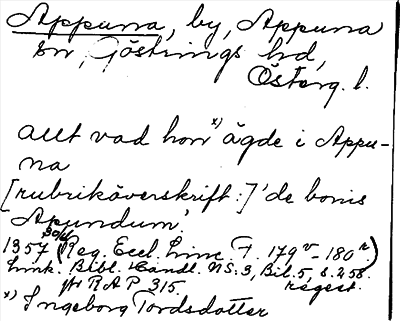 Appuna, by, Appuna
sn, Göstrings hd,
Österg. l.
allt vad hon x) ägde i Appu-
na
[rubriköverskrift:] 'de bonis
Apundum'.
1357 (Reg. Eccl. Linc F. 179v - 180r)
Link. Bibl. Handl. NS:3, Bil. 5, s. 258.
RAP 315. regest.
x) Ingeborg Tordsdotter